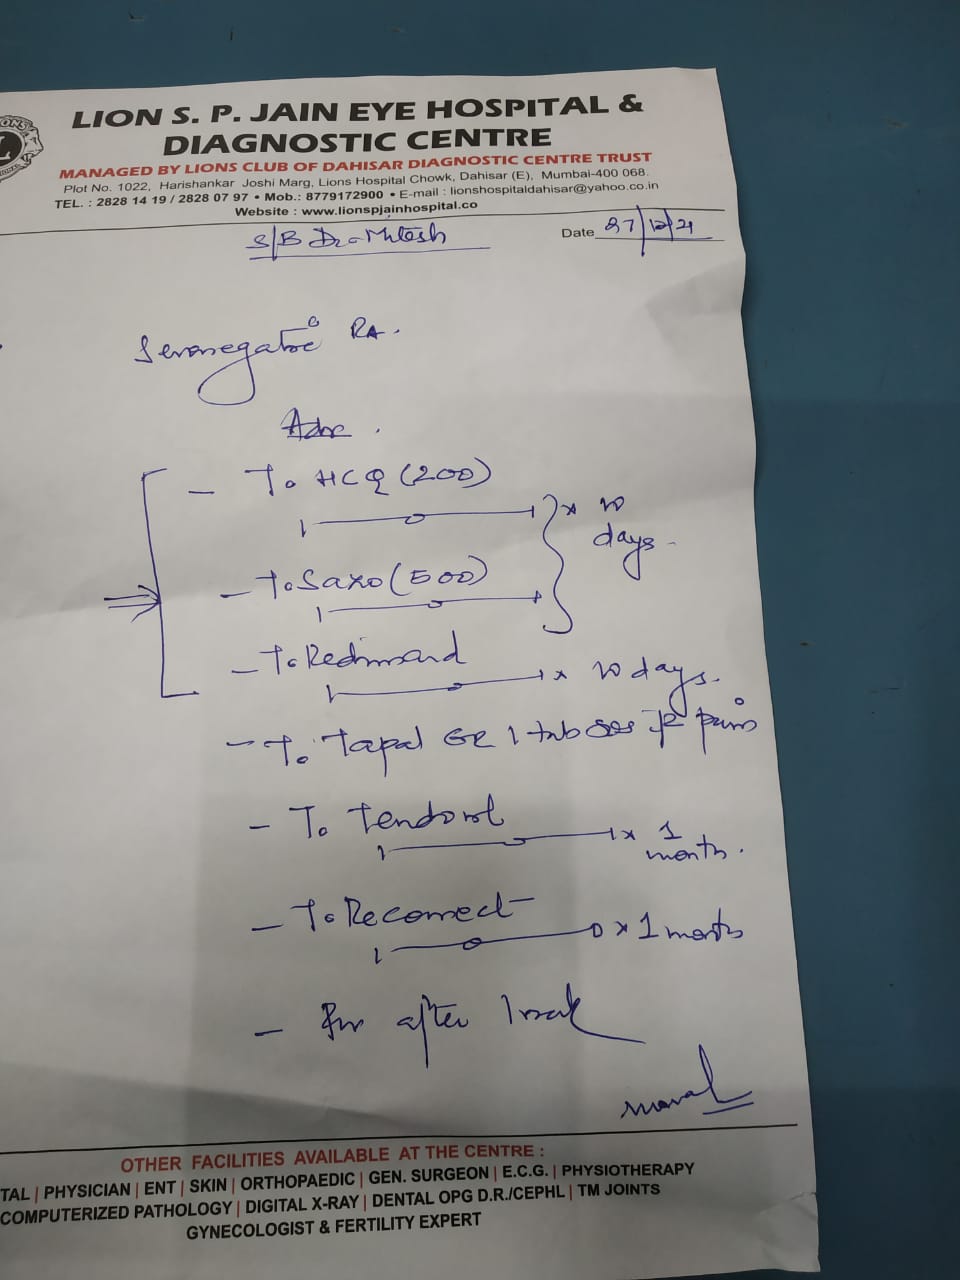 LION S. P. JAIN EYE HOSPITAL &
DIAGNOSTIC CENTRE
MANAGED BY LIONS CLUB OF DAHISAR DIAGNOSTIC CENTRE TRUST
Plot No. 1022, Harishankar Joshi Marg, Lions Hospital Chowk, Dahisar (E), Mumbai-400 068.
TEL. : 2828 14 19 / 2828 07 97 • Mob.: 8779172900 • E-mail : lionshospitaldahisar@yahoo.co.in
Website : www.lionspjainhospital.co
S/B Dr. Mitesh
Date 27/12/21
Seronegative RA.
Adv.
- T. HCQ (200)
1 — 0 — 1
x 10 days.
- T. Saxo (500)
1 — 0 — 1
- T.
1 — 0 — 1 x 10 days.
- T. Tapal ER 1 tab SOS if pain
- T.
1 — 0 — 1 x 1 month.
- T. Reconnect
1 — 0 — 0 x 1 month
- after 1 week
OTHER FACILITIES AVAILABLE AT THE CENTRE :
TAL | PHYSICIAN | ENT | SKIN | ORTHOPAEDIC | GEN. SURGEON | E.C.G. | PHYSIOTHERAPY
COMPUTERIZED PATHOLOGY | DIGITAL X-RAY | DENTAL OPG D.R./CEPHL | TM JOINTS
GYNECOLOGIST & FERTILITY EXPERT